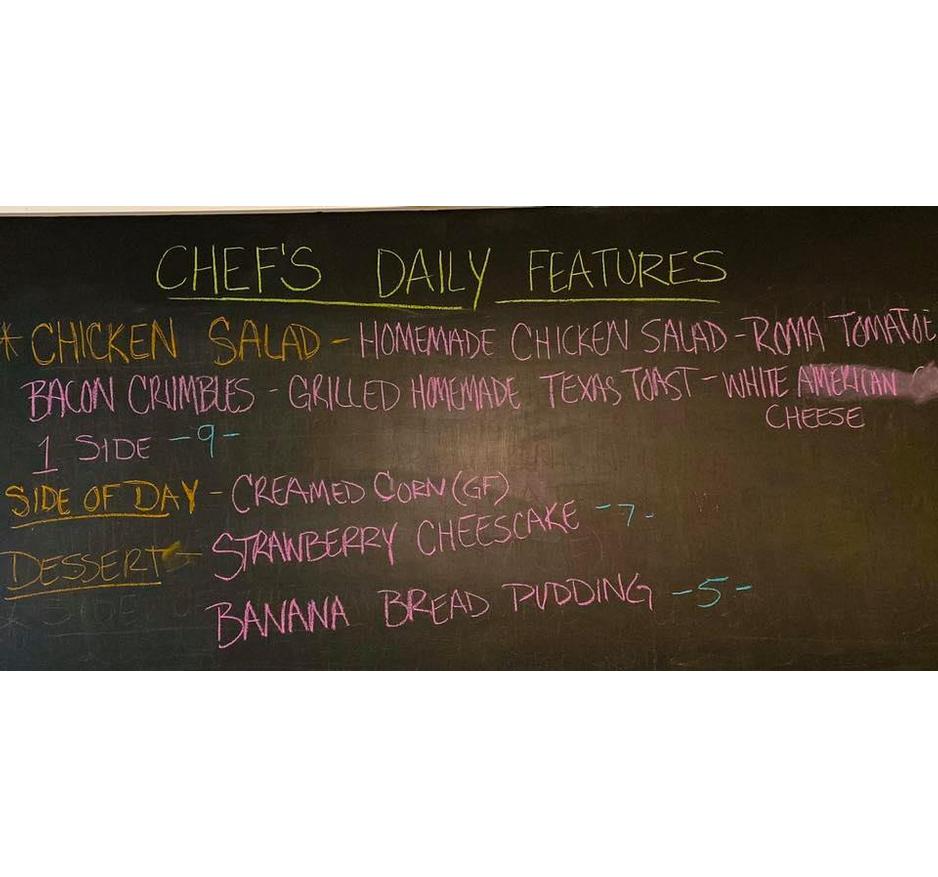 CHEF'S DAILY FEATURES
* CHICKEN SALAD - HOMEMADE CHICKEN SALAD - ROMA TOMATOE
BACON CRUMBLES - GRILLED HOMEMADE TEXAS TOAST - WHITE AMERICAN
CHEESE
1 SIDE -9-
SIDE OF DAY - CREAMED CORN (GF)
DESSERT - STRAWBERRY CHEESCAKE -7-
BANANA BREAD PUDDING -5-